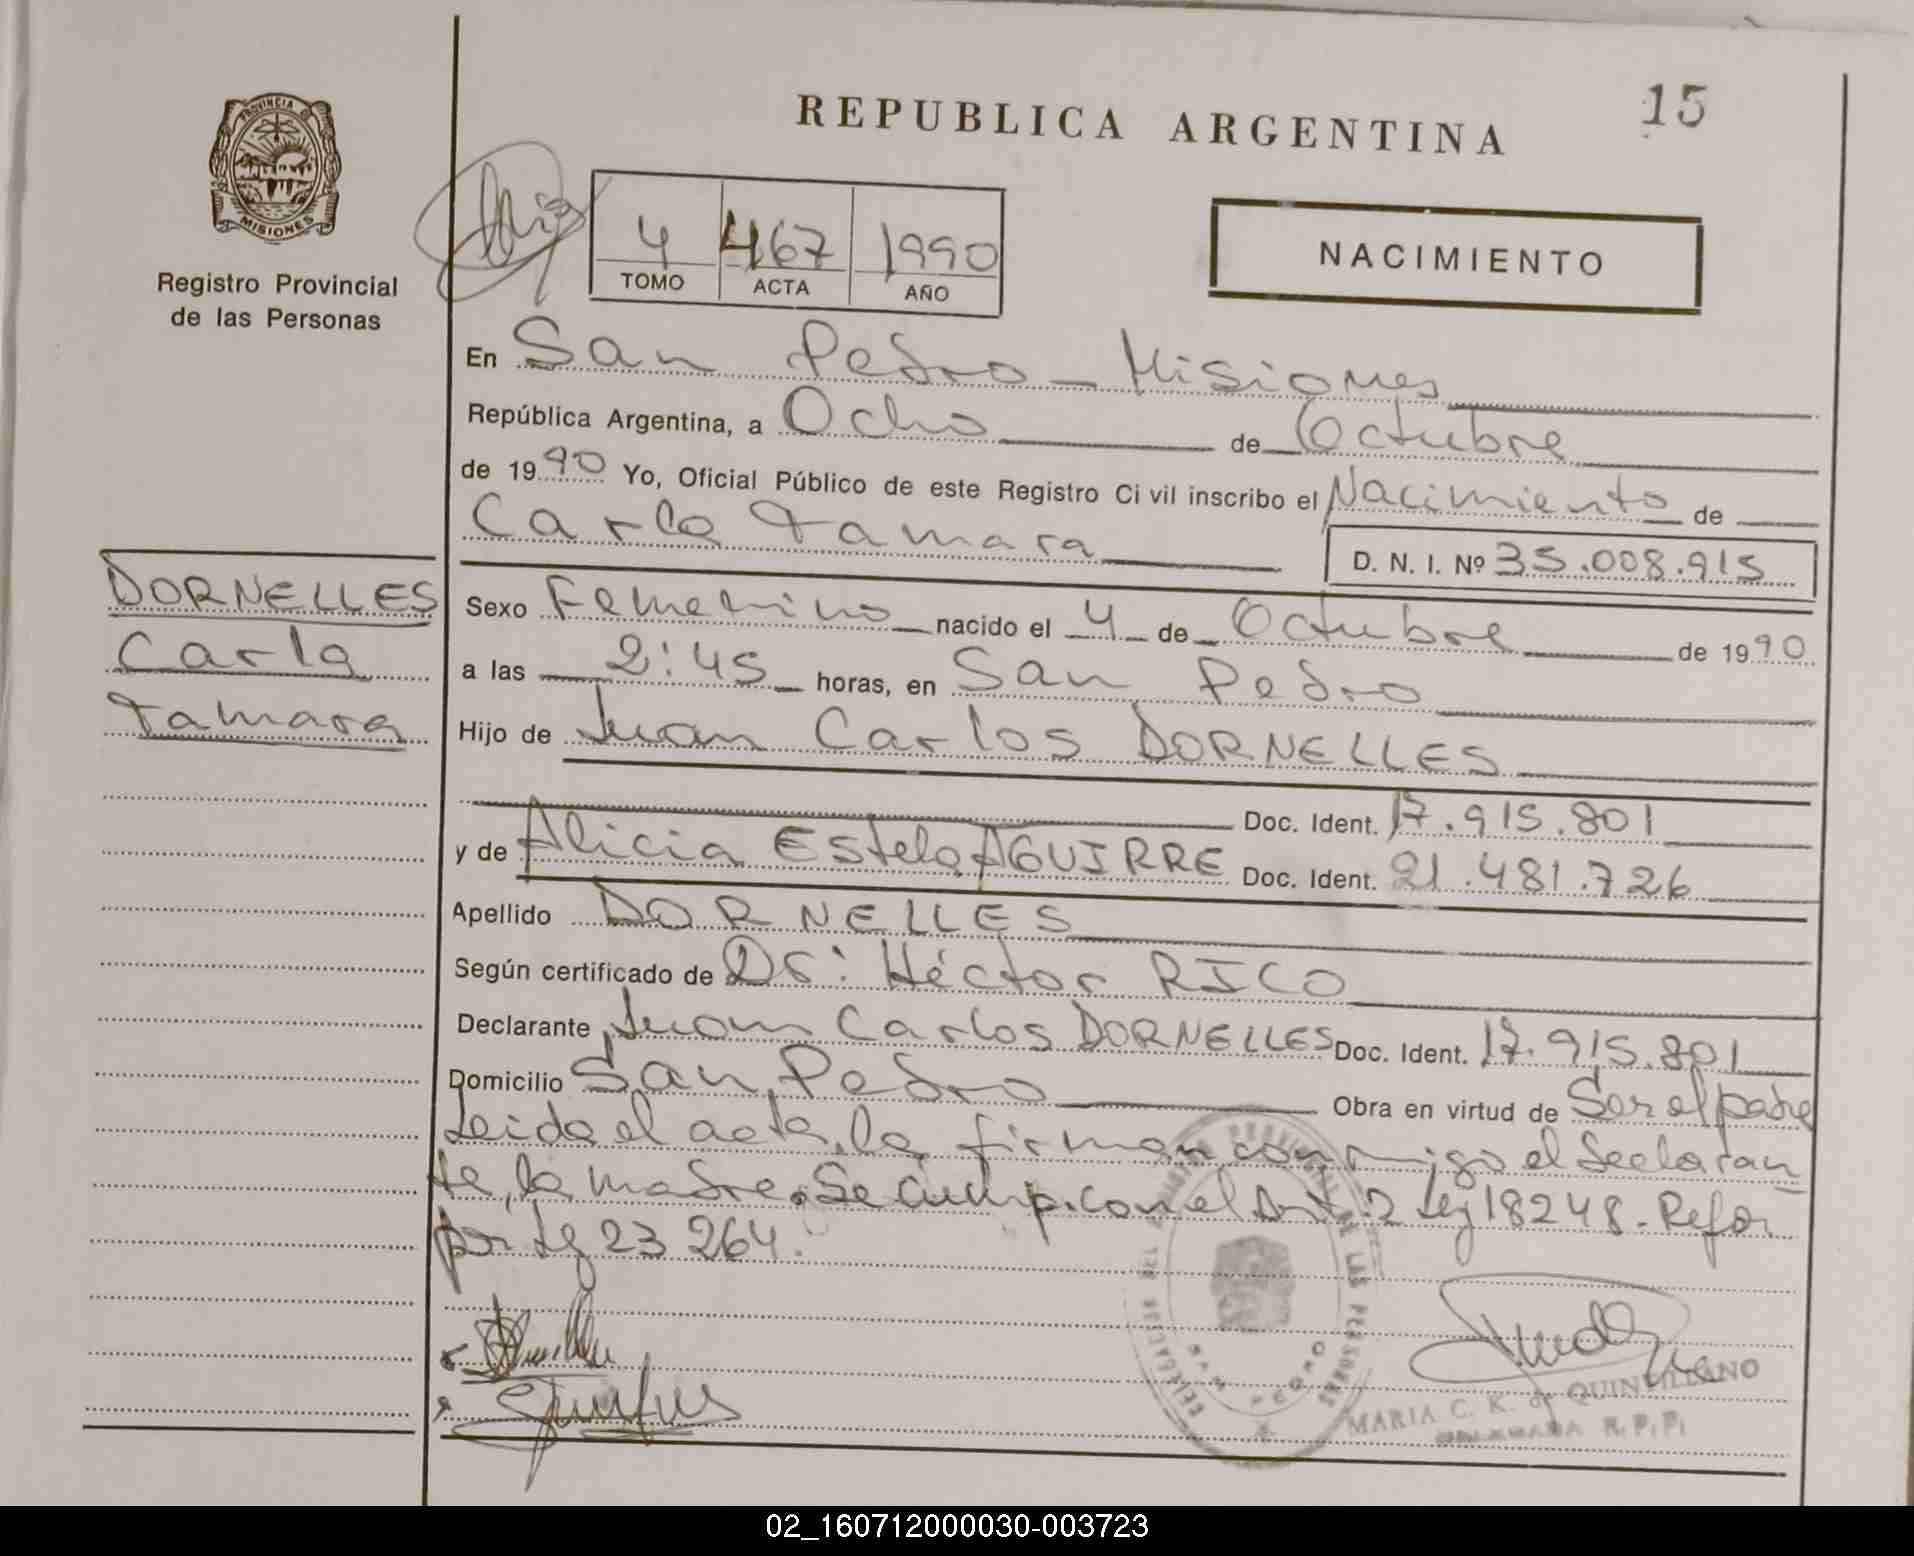 REPUBLICA ARGENTINA
15
PROVINCIA D
MISIONES
Registro Provincial
de las Personas
4 467 1990
TOMO ACTA AÑO
NACIMIENTO
En San Pedro - Misiones
República Argentina, a Ocho de Octubre
de 1990 Yo, Oficial Público de este Registro Civil inscribo el Nacimiento de
Carla Tamara D. N. I. Nº 35.008.915
DORNELLES
Carla
Tamara
Sexo Femenino nacido el 4 de Octubre de 1990
a las 2:45 horas, en San Pedro
Hijo de Juan Carlos DORNELLES
Doc. Ident. 17.915.801
y de Alicia Estela AGUIRRE Doc. Ident. 21.481.726
Apellido DORNELLES
Según certificado de Dr: Héctor RICO
Declarante Juan Carlos DORNELLES Doc. Ident. 17.915.801
Domicilio San Pedro Obra en virtud de Ser el padre
Leida el acta, la firman conmigo el declaran
te, la madre. Se cump. con el Art. 2 Ley 18248. Refor
por Ley 23 264.
DE LAS PERSONAS
SAN PEDRO
MARIA C. K. de QUINTILIANO
R. P. P.
02_160712000030-003723